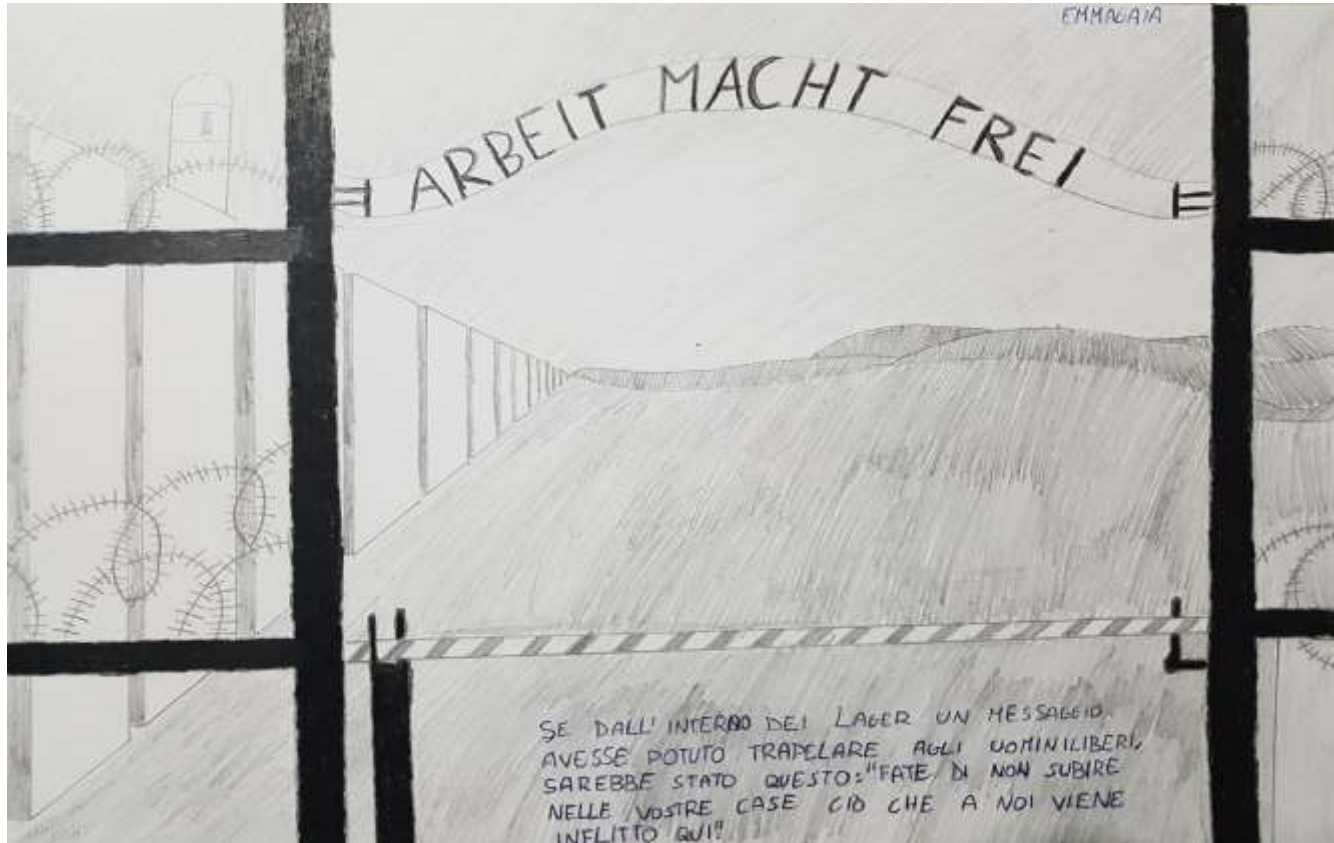 EMMAGAIA
ARBEIT MACHT FREI
SE DALL'INTERNO DEI LAGER UN MESSAGGIO
AVESSE POTUTO TRAPELARE AGLI UOMINI LIBERI,
SAREBBE STATO QUESTO: "FATE DI NON SUBIRE
NELLE VOSTRE CASE CIÒ CHE A NOI VIENE
INFLITTO QUI"